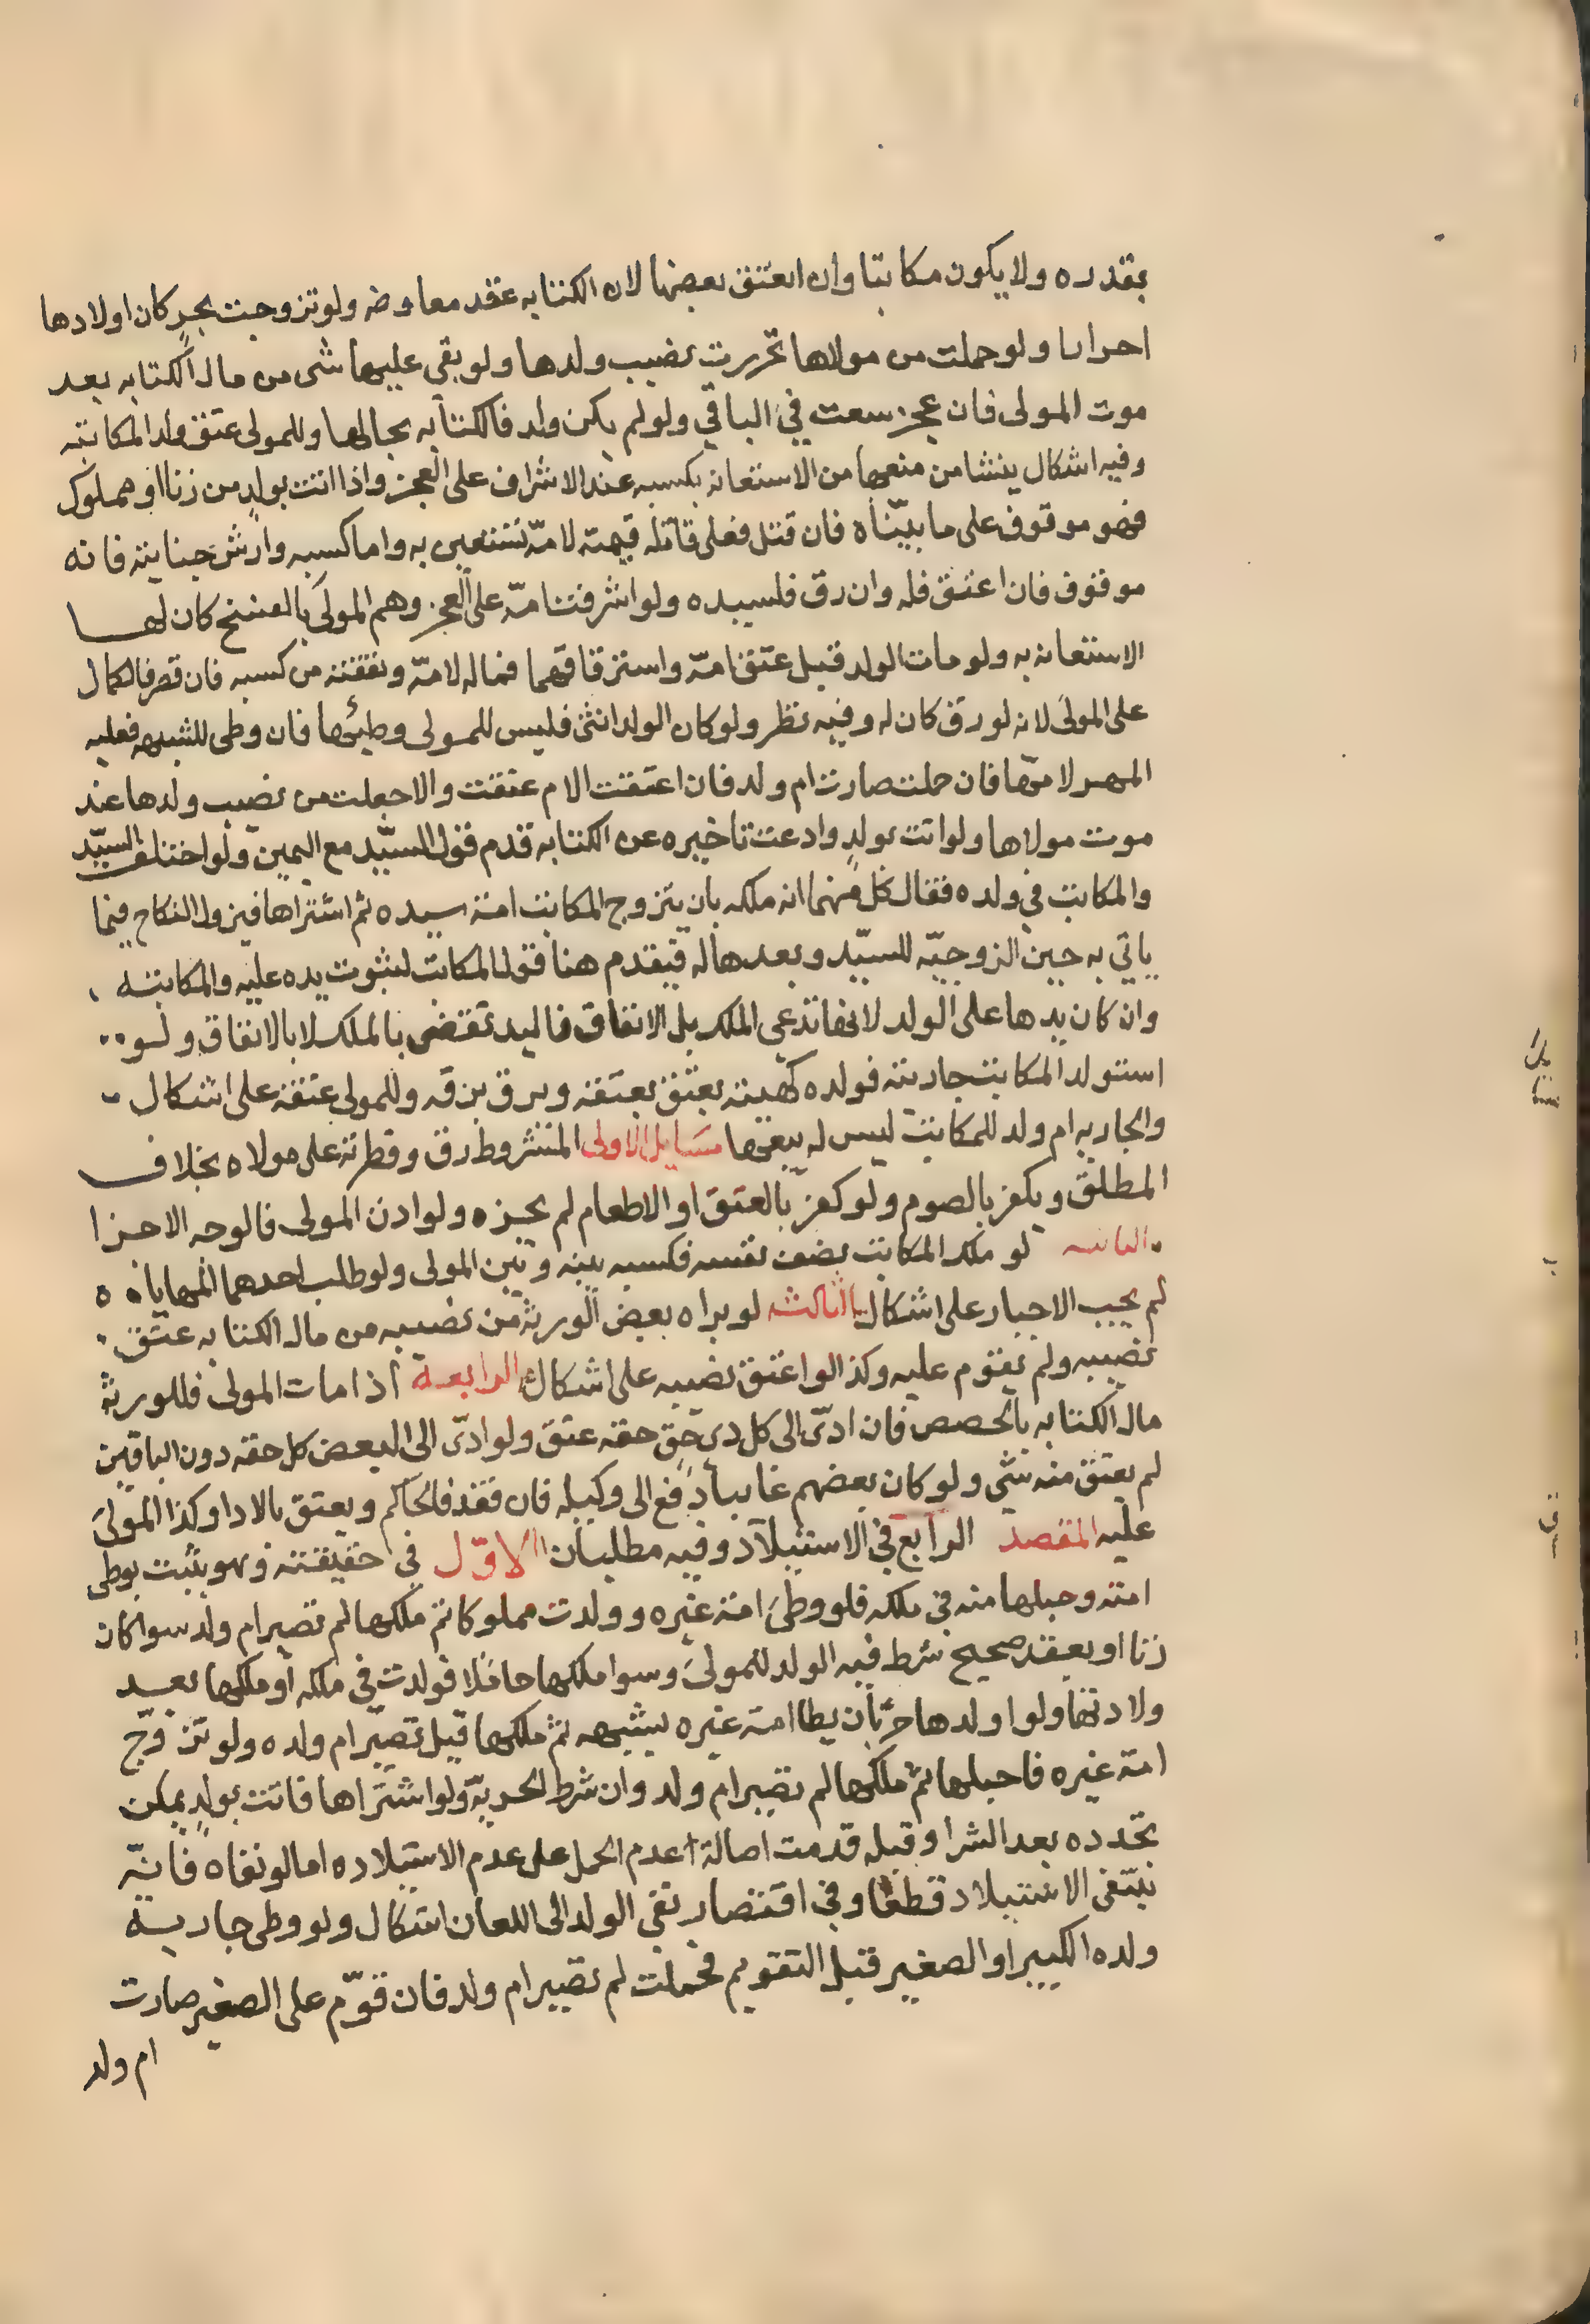 بقدره ولا يكون مكاتبا وان انعتق بعضها لان الكتابه عقد معاوضه ولو تزوجت بحرٍ كان اولادها
احرارا ولو حملت من مولاها تحررت بنصيب ولدها ولو بقى عليها شى من مال الكتابه بعد
موت المولى فان عجز سعت في الباقي ولو لم يكن ولد فالكتابه بحالها وللمولى عتق ولد المكاتبه
وفيه اشكال ينشا من منعها من الاستعانه بكسبه عند الاشراف على العجز واذا اتت بولدٍ من زنا او مملوك
فهو موقوف على ما بيّناه فان قتل فعلى قاتله قيمته لامّه تستعين به واما كسبه وارش جنايته فانه
موقوف فان اعتق فله وان رق فلسيده ولو اشرفت امّه على العجز وهم المولى بالفسخ كان لها
الاستعانه به ولو مات الولد قبل عتق امّه واسترقاقهما فماله لامّه ونفقته من كسبه فان قصر فالكمال
على المولى لانه لو رق كان له وفيه نظر ولو كان الولد انثى فليس للمولى وطيئها فان وطى للشبهه فعليه
المهر لامّها فان حملت صارت ام ولد فان اعتقت الام عتقت والا جعلت من نصيب ولدها عند
موت مولاها ولو اتت بولدٍ وادعت تاخيره عن الكتابه قدم قول السيّد مع اليمين ولو اختلف السيّد
والمكاتب في ولده فقال كل منهما انه ملكه بان يتزوج المكاتب امة سيده ثم اشتراها فيزول النكاح فيما
ياتي به حين الزوجيّه للسيّد وبعدها له فيقدم هنا قول المكاتب لثبوت يده عليه والمكاتبه
وان كان يدها على الولد لانها تدعى الملك بل الانفاق فاليد تقتضى بالملك لا بالانفاق ولو
استولد المكاتب جاريته فولده كهيئته يعتق بعتقه ويرق برقه وللمولى عتقه على اشكال
والجاريه ام ولد للمكاتب ليس له بيعها مسايل الاولى المشروط رق وفطرته على مولاه بخلاف
المطلق ويكفر بالصوم ولو كفر بالعتق او الاطعام لم يجزه ولو اذن المولى فالوجه الاجزا
الثانيه لو ملك المكاتب نصف نفسه فكسبه بينه وبين المولى ولو طلب احدهما المهاياه
لم يجب الاجبار على اشكال الثالثه لو براه بعض الورثه من نصيبه من مال الكتابه عتق
نصيبه ولم يقوم عليه وكذا لو اعتق نصيبه على اشكال الرابعة اذا مات المولى فللورثه
مال الكتابه بالحصص فان ادّى الى كل ذى حق حقه عتق ولو ادّى الى البعض كل حقه دون الباقين
لم يعتق منه شى ولو كان بعضهم غايبا دفع الى وكيله فان فقد فالحاكم ويعتق بالادا وكذا المولى
عليه المقصد الرابع في الاستيلاد وفيه مطلبان الاوّل في حقيقته وهو يثبت بوطى
امته وحبلها منه في ملكه فلو وطى امة غيره وولدت مملوكا ثم ملكها لم تصير ام ولد سوا كان
زنا او بعقد صحيح شرط فيه الولد للمولى وسوا ملكها حاملا فولدت في ملكه او ملكها بعد
ولادتها ولو اولدها حرّ بان يطا امة غيره لشبهه ثم ملكها قيل تصير ام ولده ولو تزوّج
امة غيره فاحبلها ثم ملكها لم تصير ام ولد وان شرط الحريّة ولو اشتراها فاتت بولدٍ يمكن
تجدده بعد الشرا وقبله قدمت اصالة عدم الحمل على عدم الاستيلاده اما لو نفاه فانّه
ينتفى الاستيلاد قطعا وفي افتقار نفي الولد الى اللعان اشكال ولو وطى جاريه
ولده الكبير او الصغير قبل التقويم فحملت لم تصير ام ولد فان قوّم على الصغير صارت
ام ولد